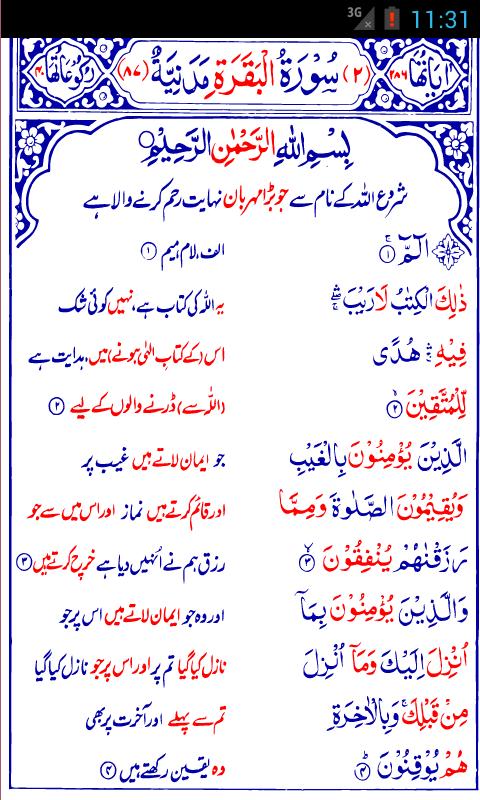 3G 11:31
اٰیَاتُهَا ۲۸۶ (۲) سُوْرَةُ الْبَقَرَةِ مَدَنِیَّةٌ (۸۷) رُكُوْعَاتُهَا ۴۰
بِسْمِ اللهِ الرَّحْمٰنِ الرَّحِیْمِ
شروع اللہ کے نام سے جو بڑا مہربان نہایت رحم کرنے والا ہے
الٓمّٓ ۚ ۱ الف، لام، میم ۱
ذٰلِكَ الْكِتٰبُ لَا رَیْبَ ۛۖۚ یہ اللہ کی کتاب ہے، نہیں کوئی شک
فِیْهِ ۛۚ هُدًی اس (کے کتابِ الٰہی ہونے) میں، ہدایت ہے
لِّلْمُتَّقِیْنَ ۙ ۲ (اللہ سے) ڈرنے والوں کے لیے ۲
الَّذِیْنَ یُؤْمِنُوْنَ بِالْغَیْبِ جو ایمان لاتے ہیں غیب پر
وَیُقِیْمُوْنَ الصَّلٰوةَ وَمِمَّا اور قائم کرتے ہیں نماز اور اس میں سے جو
رَزَقْنٰهُمْ یُنْفِقُوْنَ ۙ ۳ رزق ہم نے انہیں دیا ہے خرچ کرتے ہیں ۳
وَالَّذِیْنَ یُؤْمِنُوْنَ بِمَاۤ اور وہ جو ایمان لاتے ہیں اس پر جو
اُنْزِلَ اِلَیْكَ وَمَاۤ اُنْزِلَ نازل کیا گیا تم پر اور اس پر جو نازل کیا گیا
مِنْ قَبْلِكَ ۚ وَبِالْاٰخِرَةِ تم سے پہلے اور آخرت پر بھی
هُمْ یُوْقِنُوْنَ ؕ ۴ وہ یقین رکھتے ہیں ۴